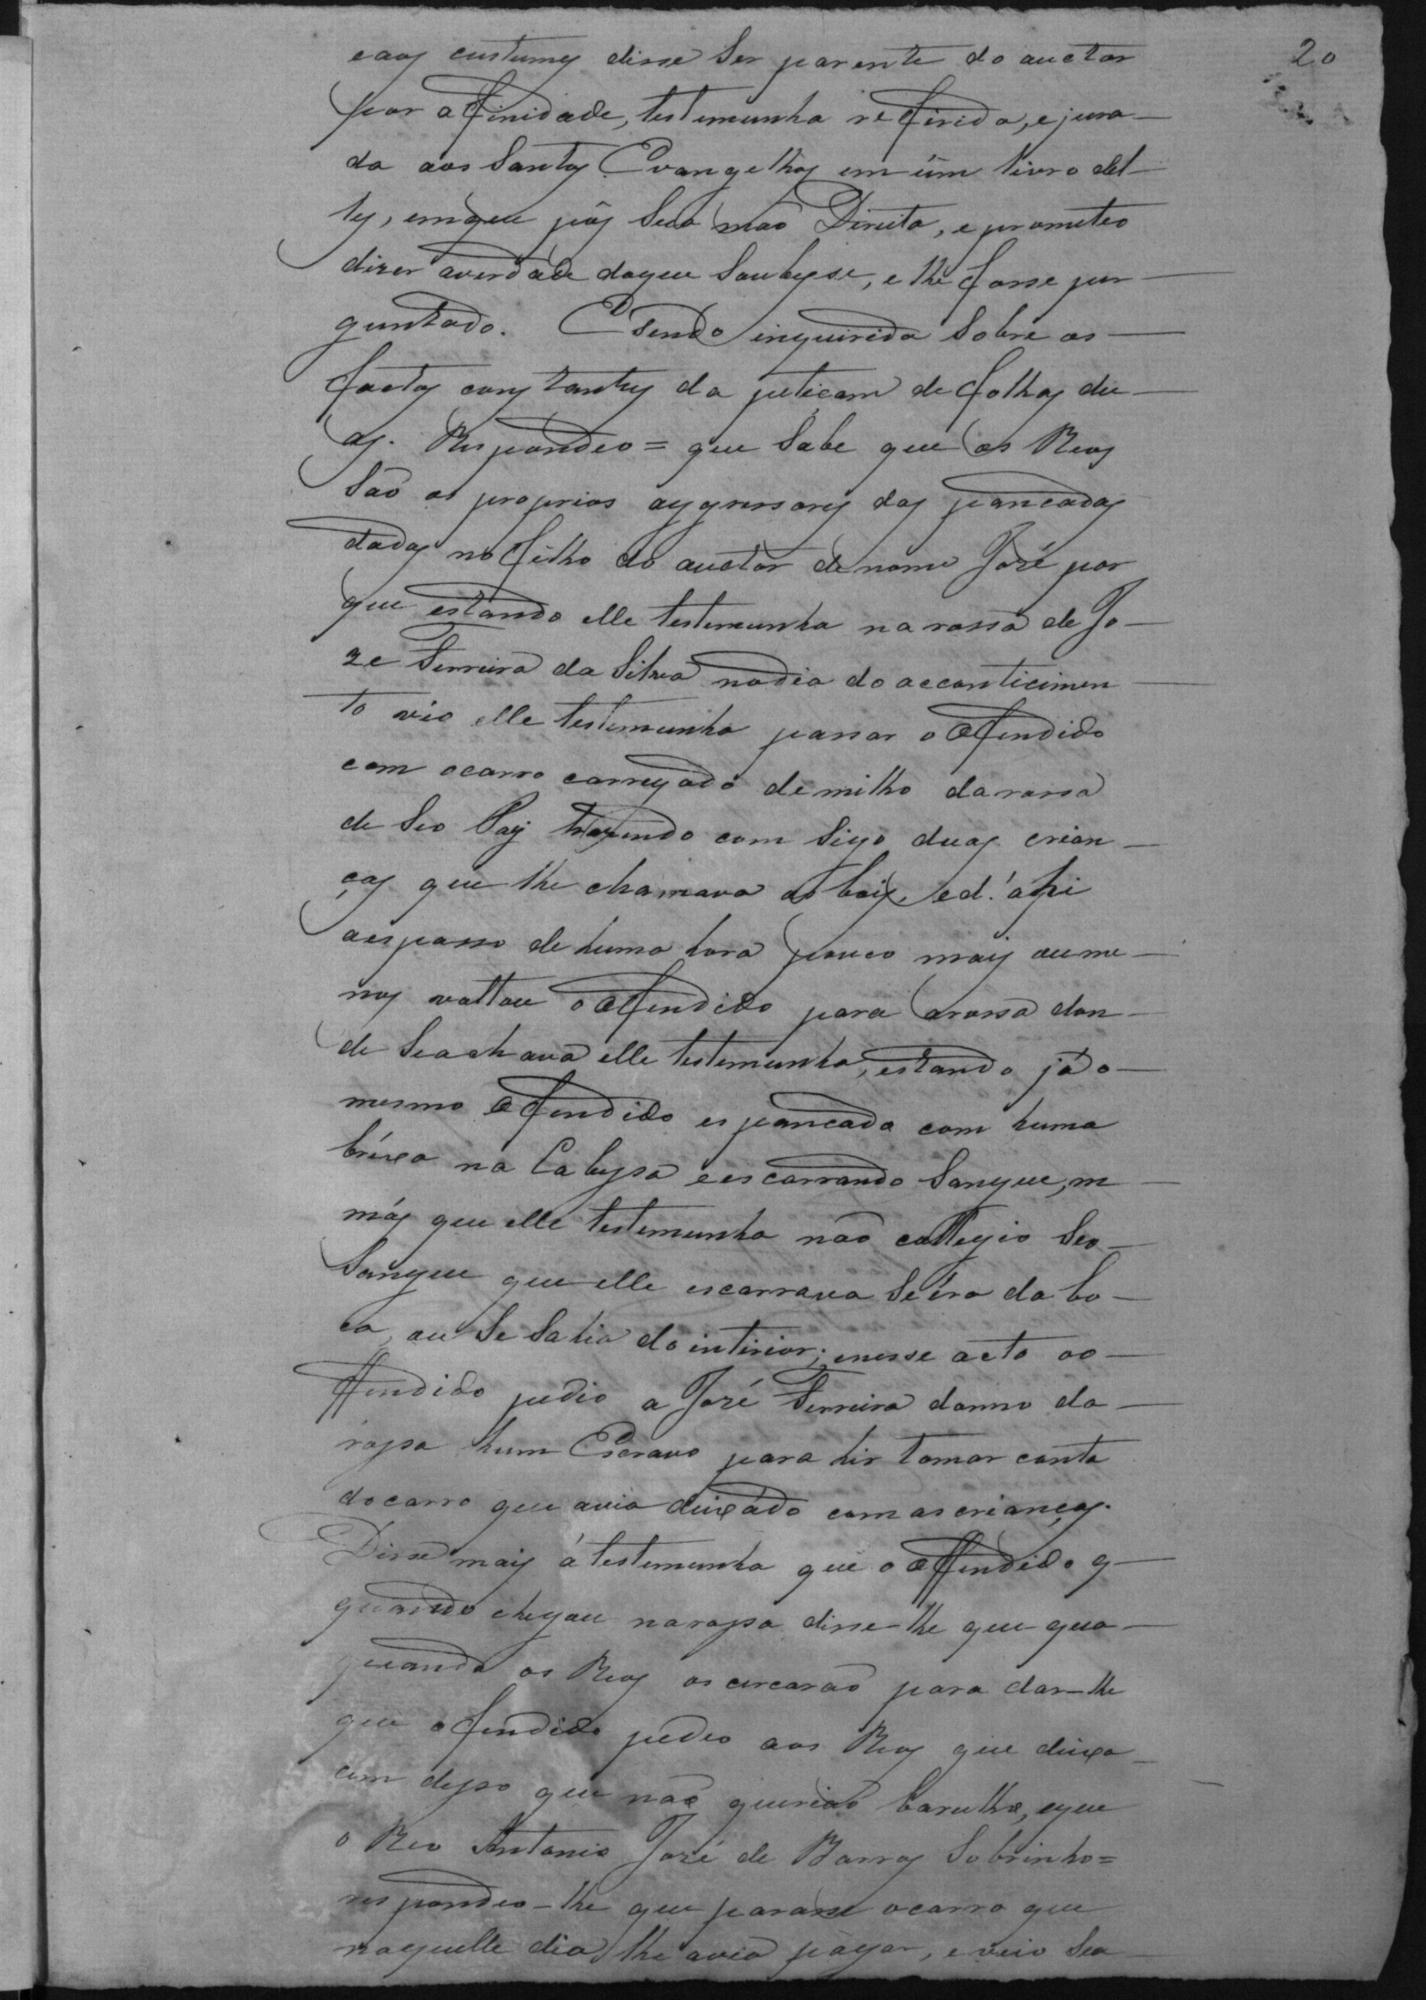 20
eaos custumes disse Ser parente do auctor
por afinidade, testemunha referida, ejura-
da aos Santos Evangelhos em úm livro del-
les, emque pôs Sua mão Direita, e prometeo
dizer averdade doque Soubesse, e lhe fosse per-
guntado. E sendo inquirida Sobre os
factos constantes da peticam de folhas du-
as. Respondeo = que Sabe que os Reos
São os proprios aggressores das pancadas
dadas no filho do auctor de nome José por
que estando elle testemunha na rossa de Jo-
ze Ferreira da Silva nodia do acconticimen
to vio elle testemunha passar o Offendido
com ocarro carregado de milho da rossa
de Seo Pay trazendo com Sigo duas crian-
ças que lhe chamava os bois, ed'ahi
aespasso de huma hora pouco mais oume-
nos voltou o Offendido para arossa don-
de Seachava elle testemunha, estando já o
mesmo Offendido espancado com huma
bréxa na Cabessa e escarrando Sangue, m
más que elle testemunha não collegio Seo
Sangue que elle escarrava Se éra da bo-
ca, ou Se Sahia do interior; enesse acto oo-
ffendido pedio a José Ferreira donno da
rossa hum Escravo para hir tomar conta
docarro que avia deixádo com as crianças.
Disse mais á testemunha que o Offendido q-
quando chegou narossa disse-lhe que qua-
quando os Reos os cercarão para dar-lhe
que ofendido pedeo aos Reos que deixa-
cem desso que não querião barulho, eque
o Reo Antonio José de Barros Sobrinho =
respondeo-lhe que parasse ocarro que
naquelle dia lhe avia pagar, e veio Seo